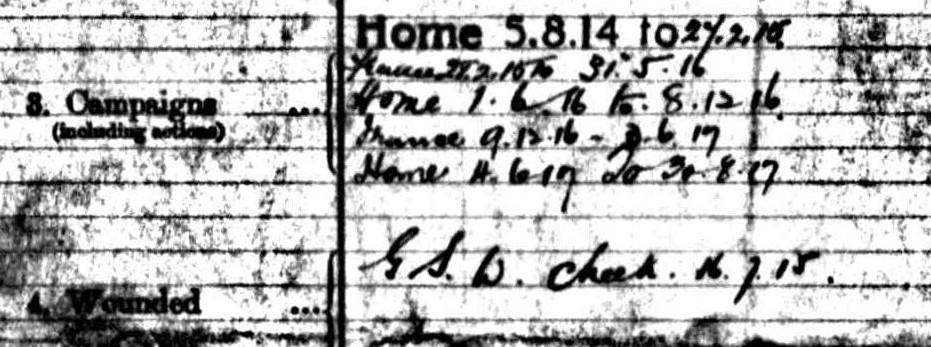 Home 5.8.14 to 27.2.15
France 28.2.15 to 31.5.16
3. Campaigns ... Home 1.6.16 to 8.12.16
(including actions)
France 9.12.16 - 3.6.17
Home 4.6.17 to 30.8.17
G S. W. cheek. 16.7.15.
4. Wounded ...